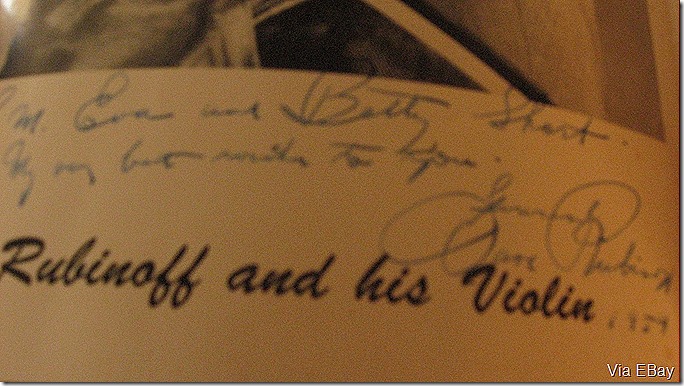 M. Eva and Betty Short.
My very best wishes to you.
Sincerely
Dave Rubinoff
Rubinoff and his Violin
Via EBay